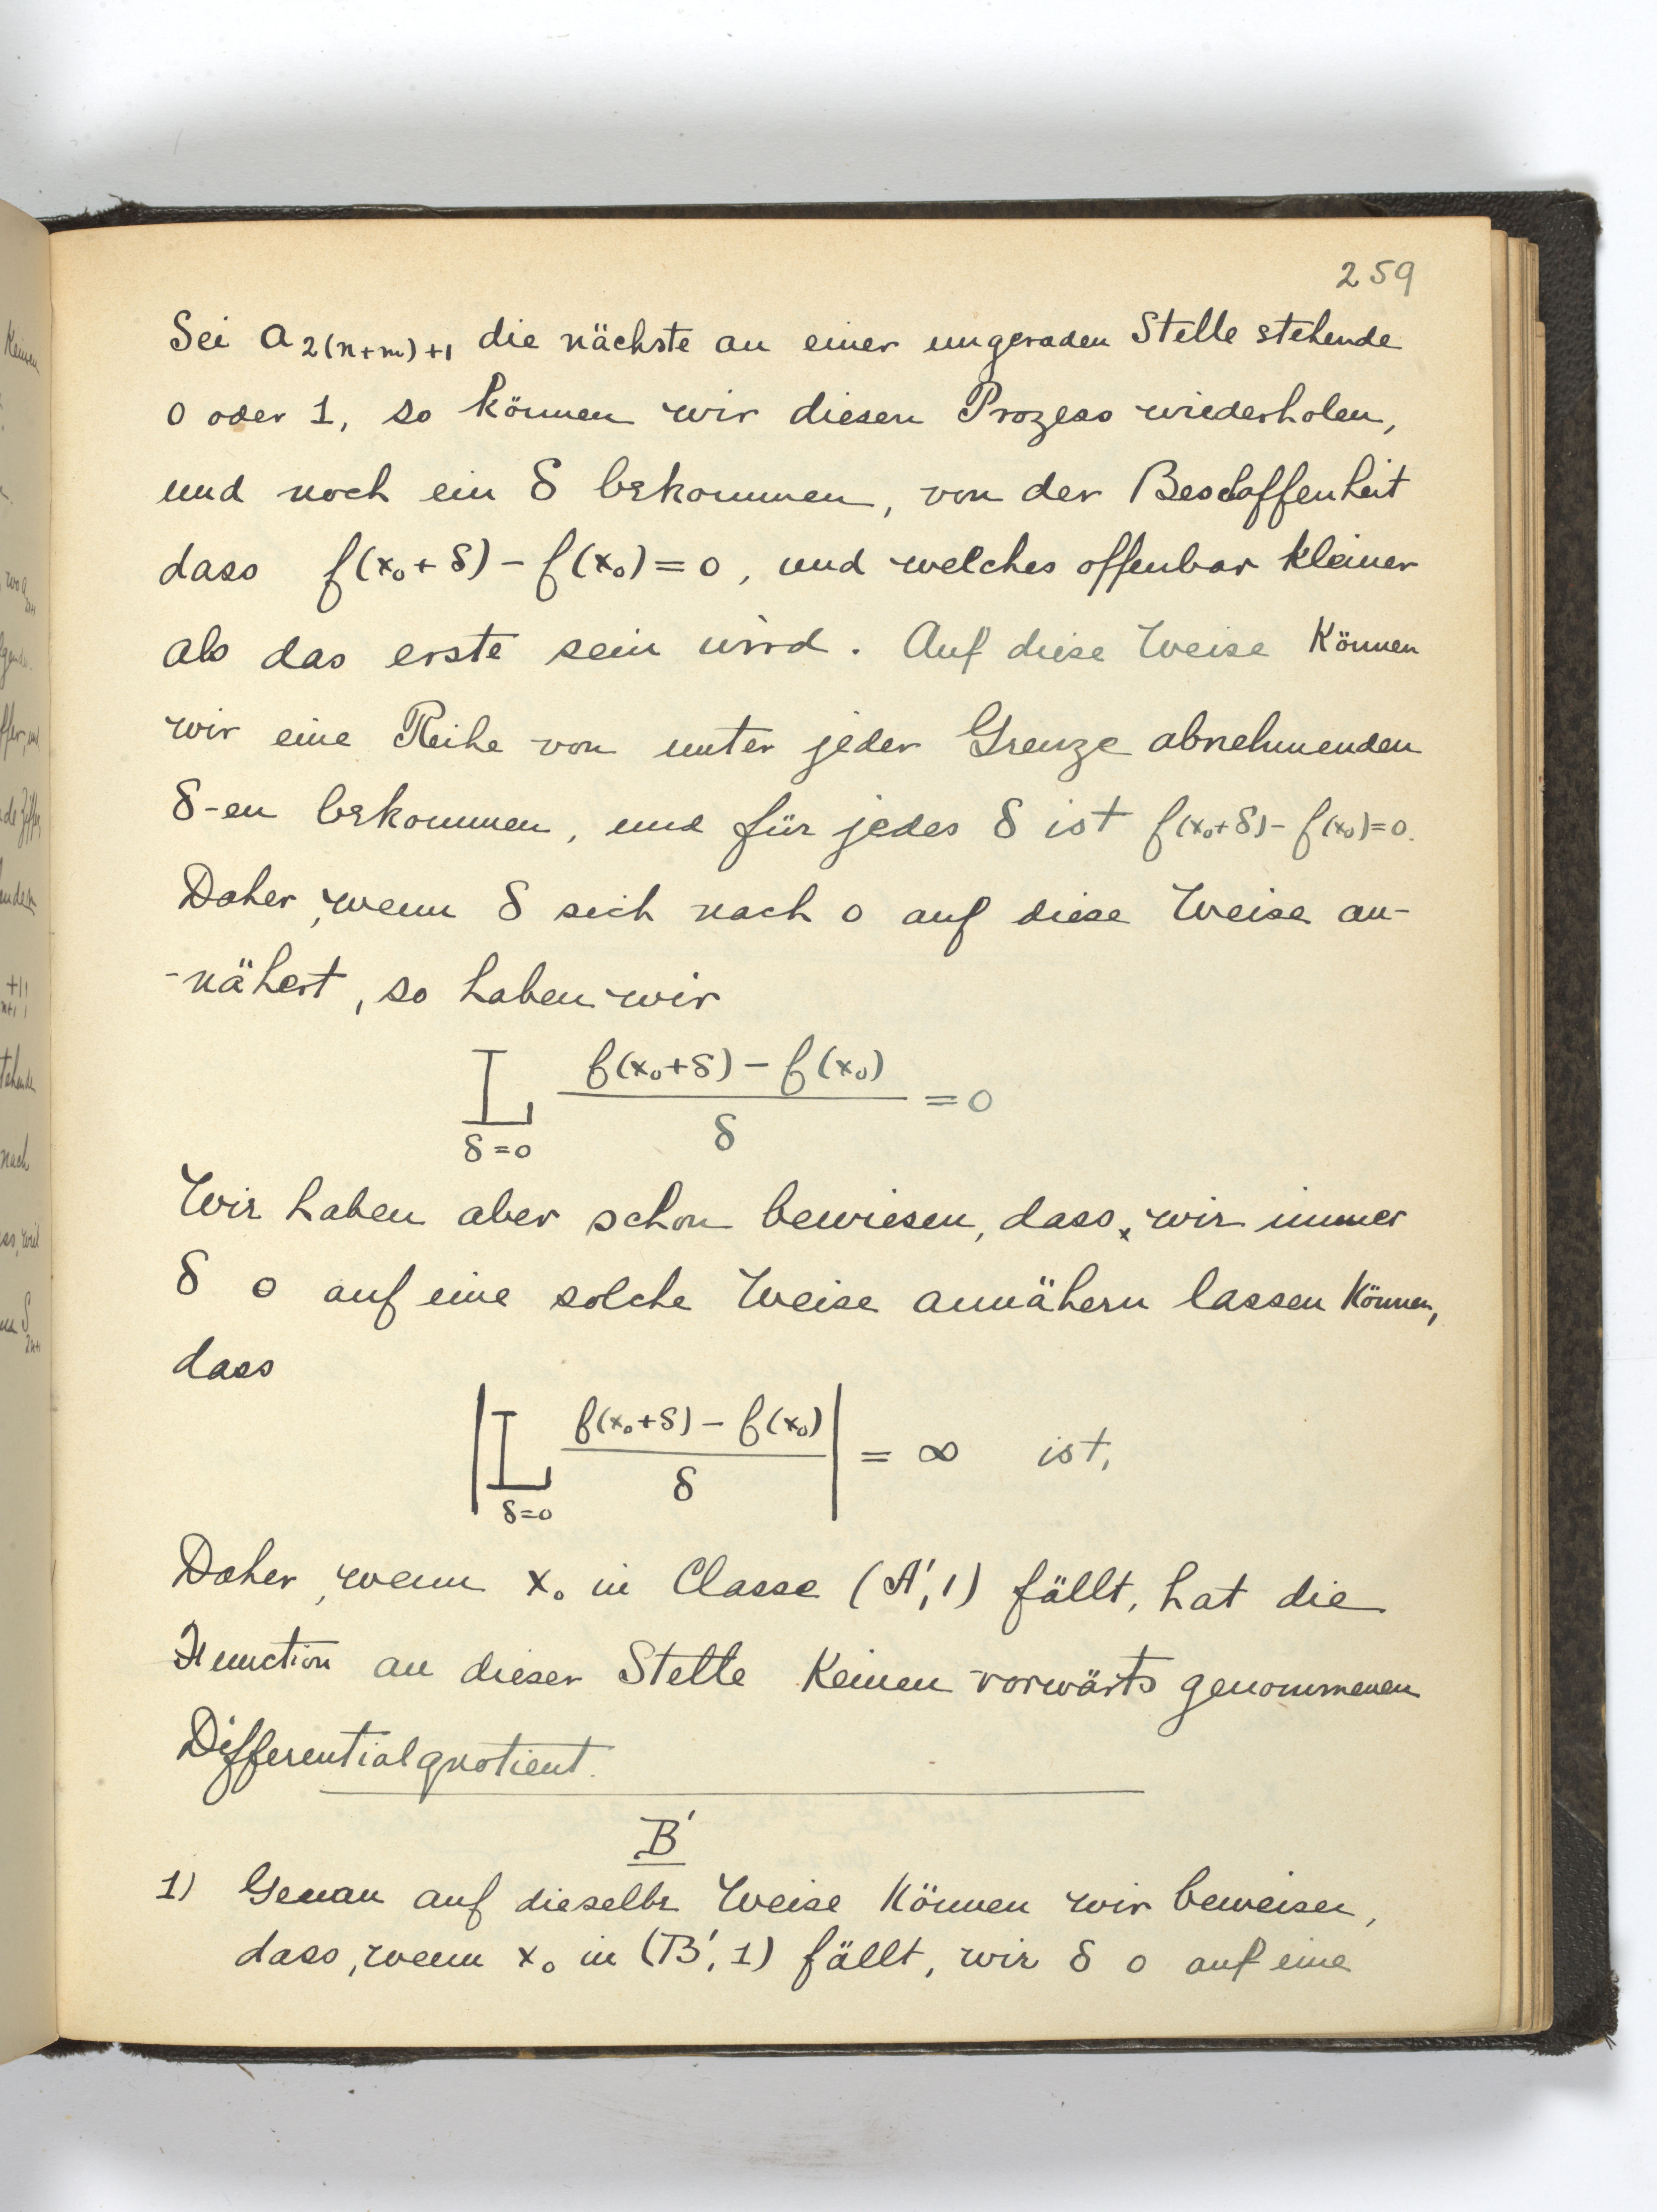 259
Sei a₂₍ₙ₊ₘ₎₊₁ die nächste an einer ungeraden Stelle stehende
0 oder 1, so können wir diesen Prozess wiederholen,
und noch ein δ bekommen, von der Beschaffenheit
dass f(x₀+δ) - f(x₀) = 0, und welches offenbar kleiner
als das erste sein wird. Auf diese Weise können
wir eine Reihe von unter jeder Grenze abnehmenden
δ-en bekommen, und für jedes δ ist f(x₀+δ) - f(x₀) = 0.
Daher, wenn δ sich nach 0 auf diese Weise an-
-nähert, so haben wir
L f(x₀+δ) - f(x₀)
δ = 0
δ=0
Wir haben aber schon bewiesen, dass, wir immer
δ 0 auf eine solche Weise annähern lassen können,
dass
|L f(x₀+δ) - f(x₀)|
δ = ∞ ist,
δ=0
Daher, wenn x₀ in Classe (A', 1) fällt, hat die
Function an dieser Stelle keinen vorwärts genommenen
Differentialquotient.
B'
1) Genau auf dieselbe Weise können wir beweisen,
dass, wenn x₀ in (B', 1) fällt, wir δ 0 auf eine